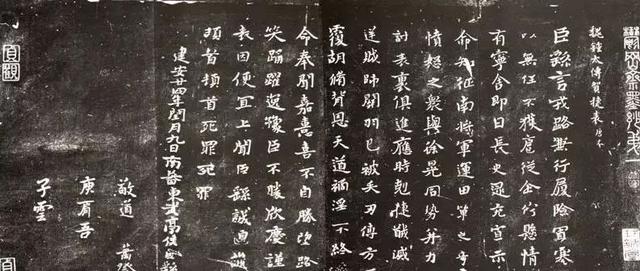 魏鍾太傅賀捷表唐本
臣繇言戎路兼行履險冒寒
以無任不獲扈從企佇懸情
有寧舍即日長史逯充宣示
命知征南將軍運田單之奇
憤怒之眾與徐晃同勢并力
討表裏俱進應時剋捷馘滅
逆賊帥關羽已被矢刃傅方反
覆胡脩背恩天道禍淫不終
命奉聞嘉憙喜不自勝望路
笑踊躍逸豫臣不勝欣慶謹
表因便宜上聞臣繇誠惶誠
頓首頓首死罪死罪
建安廿四年閏月九日南蕃東武亭侯臣繇
敬道
庾肩吾
子雲
貞觀
貞觀